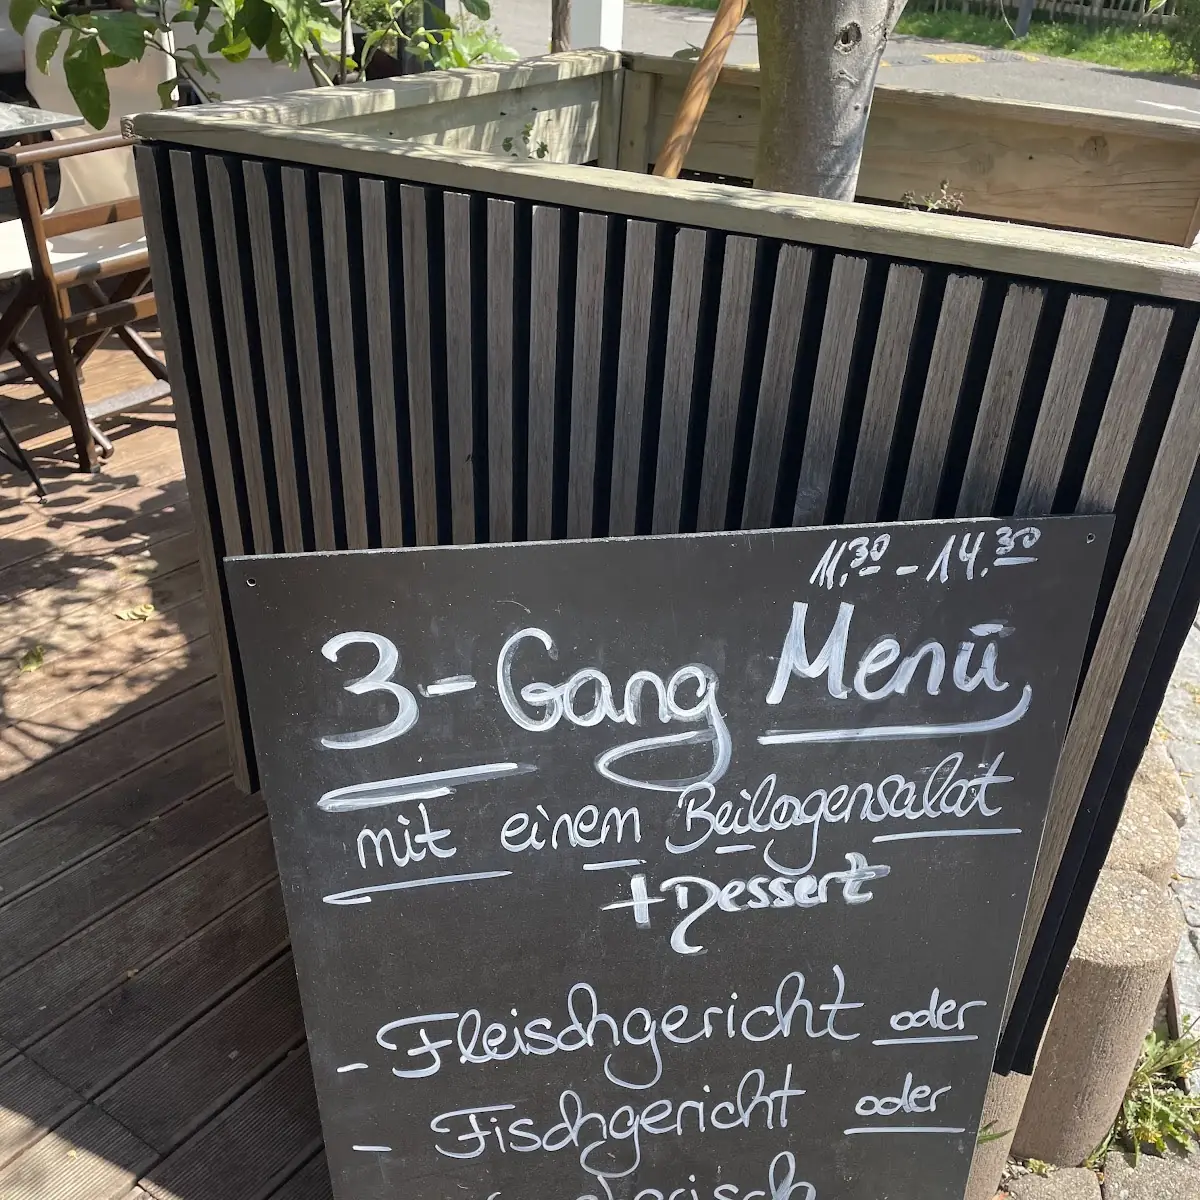 11.30 - 14.30
3-Gang Menü
mit einem Beilagensalat
+Dessert
- Fleischgericht oder
- Fischgericht oder